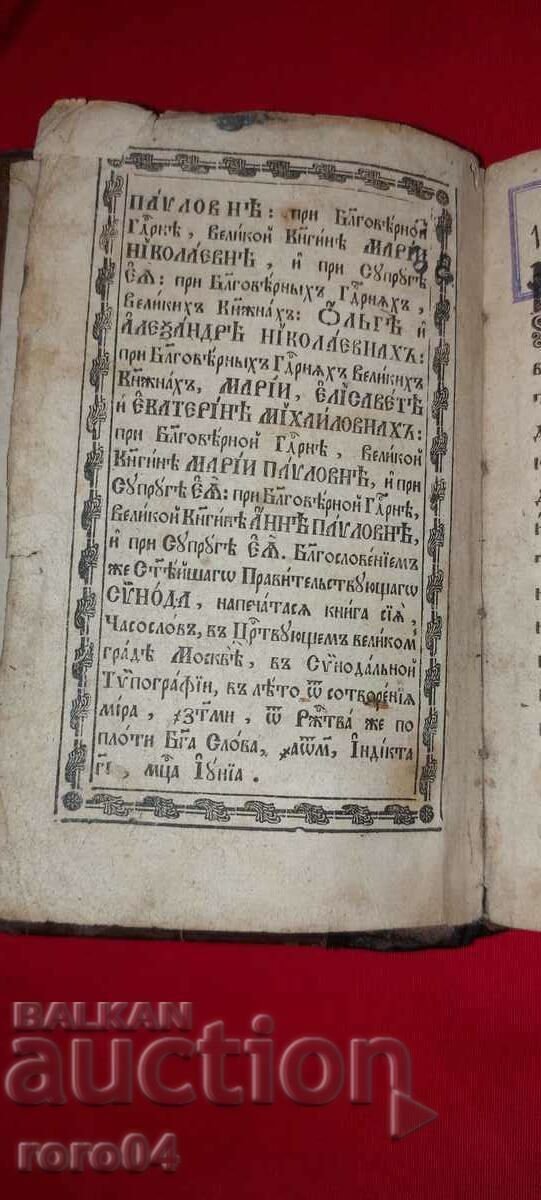 ПАѴЛОВНѢ: при Бл҃говѣ́рной
Гдⷭ҇рнѣ, Великой Кн҃гинѣ МАРІ́И
НІКОЛА́ЕВНѢ, и҆ при Сꙋпрꙋгѣ
Є҆Ѧ̀: при Бл҃говѣ́рныхъ Гдⷭ҇рнѧхъ,
Великихъ Кнѧжна́хъ: Ѻ҆́ЛЬГѢ и҆
А҆ЛЕѮА́НДРѢ НІКОЛА́ЕВНАХЪ:
при Бл҃говѣ́рныхъ Гдⷭ҇рнѧхъ Великихъ
Кнѧжна́хъ, МАРІ́И, Є҆ЛІСАВЕ́ТѢ
и҆ Є҆КАТЕРІ́НѢ МІХА́ИЛОВНАХЪ:
при Бл҃говѣ́рной Гдⷭ҇рнѣ, Великой
Кн҃гинѣ МАРІ́И ПА́ѴЛОВНѢ, и҆ при
Сꙋпрꙋгѣ Є҆Ѧ̀: при Бл҃говѣ́рной Гдⷭ҇рнѣ,
Великой Кн҃гинѣ А҆́ННѢ ПА́ѴЛОВНѢ,
и҆ при Сꙋпрꙋгѣ Є҆Ѧ̀. Бл҃гослове́нїемъ
же Ст҃ѣ́йшагѡ Прави́тельствꙋющагѡ
СѴНО́ДА, напеча́тасѧ книга сїѧ̀,
Часосло́въ, въ Црⷭ҇твꙋющемъ великомъ
гра́дѣ Москвѣ̀, въ Сѵнода́льной
Тѵпогра́фїи, въ лѣ́то ѿ сотворе́нїѧ
мі́ра, ҂зтми, ѿ Ржⷭ҇тва̀ же по
пло́ти Бг҃а Сло́ва, ҂аѡм, І҆ндікта
гі, мцⷭ҇а І҆ꙋнїа.
BALKAN
auction
roro04